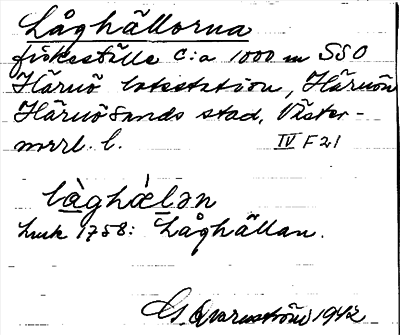 Låghällorna
fiskeställe c:a 1000 m SSO
Härnö lotsstation, Härnön
Härnösands stad, Väster-
norrl. l. IV F 21
là̱ghæ̀lən
Luk 1758: Låghällan.
G. Qvarnström 1942